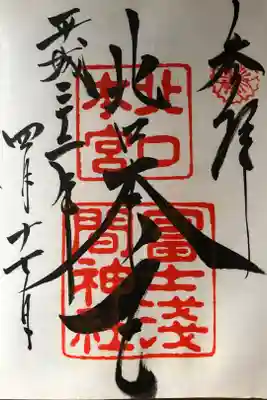 奉拝
北口本宮
平成二十二年
四月十七日
北口
本宮
冨士淺
間神社